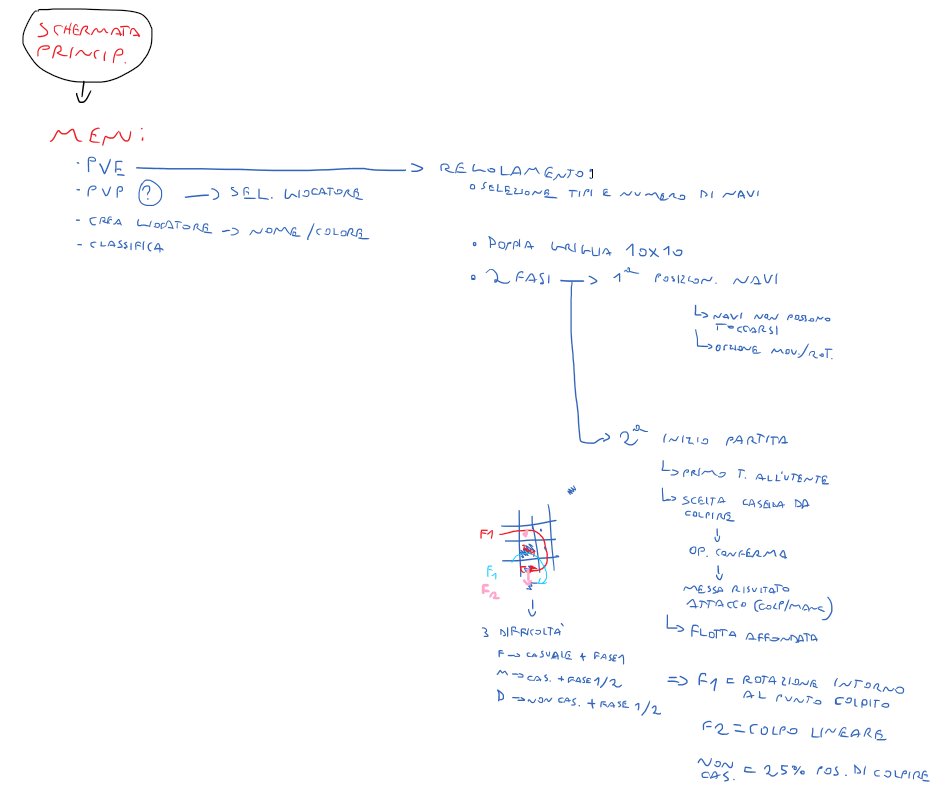 SCHERMATA
PRINCIP.
MENU:
- PVE → REGOLAMENTO:
○ SELEZIONE TIPI E NUMERO DI NAVI
- PVP ? → SEL. GIOCATORE
- CREA GIOCATORE → NOME/COLORE
- CLASSIFICA
• DOPPIA GRIGLIA 10X10
• 2 FASI → 1ª POSIZION. NAVI
↳ NAVI NON POSSONO
TOCCARSI
↳ OPZIONE MOV./ROT.
→ 2ª INIZIO PARTITA
↳ PRIMO T. ALL'UTENTE
↳ SCELTA CASELLA DA
COLPIRE
↓
OP. CONFERMA
↓
MESSA RISULTATO
ATTACCO (COLP/MANC)
↳ FLOTTA AFFONDATA
F1
F1
F2
↓
3 DIFFICOLTÀ
F → CASUALE + FASE 1
M → CAS. + FASE 1/2
D → NON CAS. + FASE 1/2
⇒ F1 = ROTAZIONE INTORNO
AL PUNTO COLPITO
F2 = COLPO LINEARE
NON
CAS. = 25% POS. DI COLPIRE